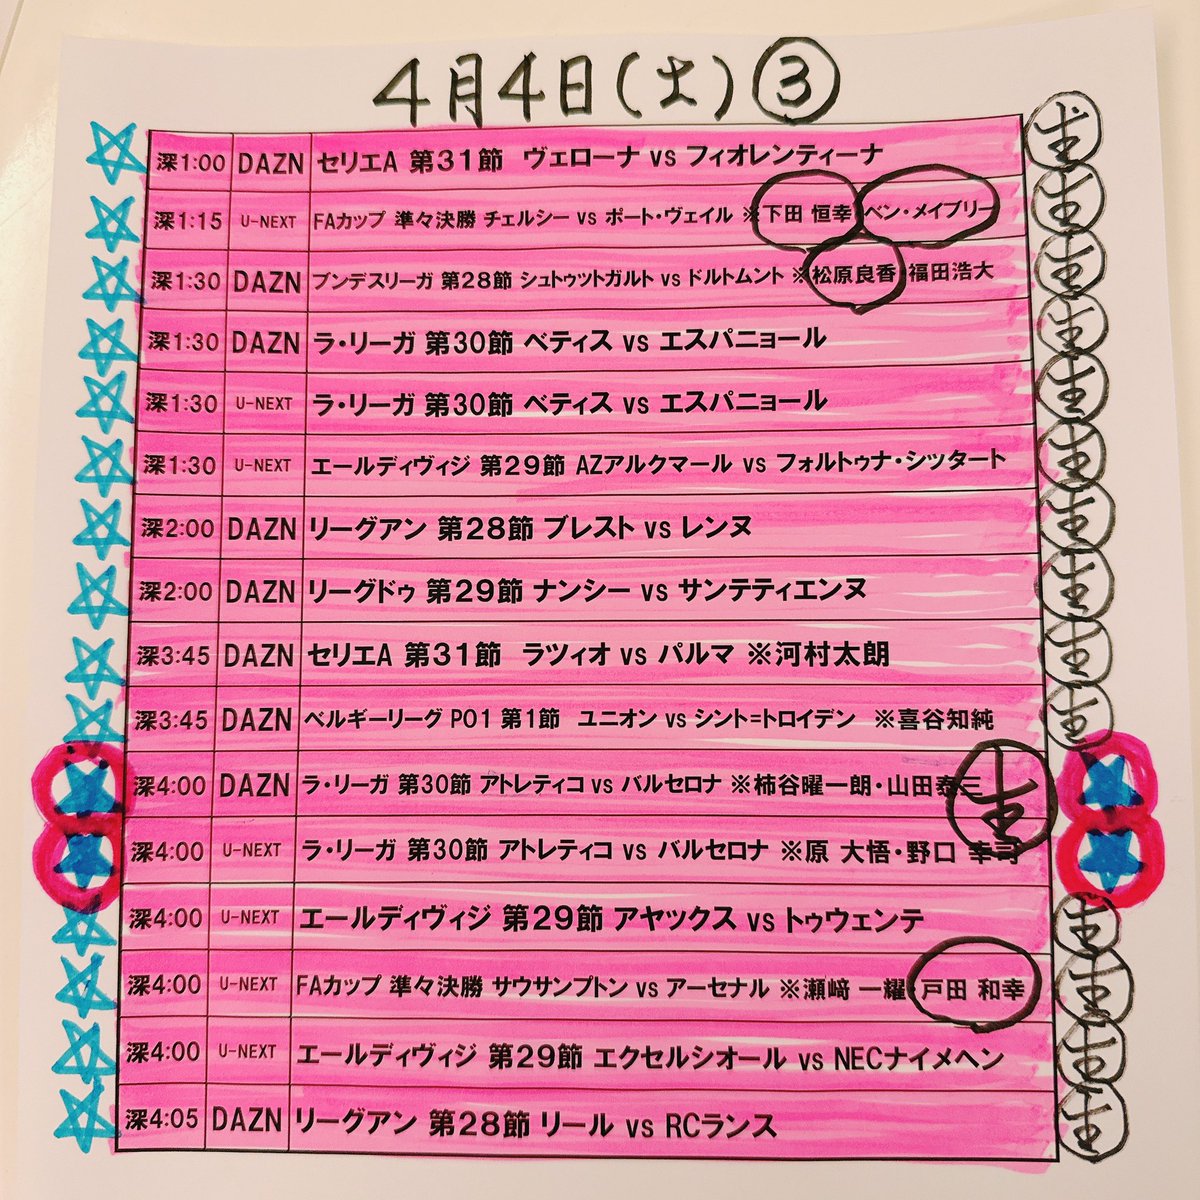 4月4日(土)③
深1:00 DAZN セリエA 第31節 ヴェローナ vs フィオレンティーナ
深1:15 U-NEXT FAカップ 準々決勝 チェルシー vs ポート・ヴェイル ※下田 恒幸・ベン・メイブリー
深1:30 DAZN ブンデスリーガ 第28節 シュトゥットガルト vs ドルトムント ※松原良香・福田浩大
深1:30 DAZN ラ・リーガ 第30節 ベティス vs エスパニョール
深1:30 U-NEXT ラ・リーガ 第30節 ベティス vs エスパニョール
深1:30 U-NEXT エールディヴィジ 第29節 AZアルクマール vs フォルトゥナ・シッタート
深2:00 DAZN リーグアン 第28節 ブレスト vs レンヌ
深2:00 DAZN リーグドゥ 第29節 ナンシー vs サンテティエンヌ
深3:45 DAZN セリエA 第31節 ラツィオ vs パルマ ※河村太朗
深3:45 DAZN ベルギーリーグ PO1 第1節 ユニオン vs シント=トロイデン ※喜谷知純
深4:00 DAZN ラ・リーガ 第30節 アトレティコ vs バルセロナ ※柿谷曜一朗・山田泰三
深4:00 U-NEXT ラ・リーガ 第30節 アトレティコ vs バルセロナ ※原 大悟・野口 幸司
深4:00 U-NEXT エールディヴィジ 第29節 アヤックス vs トゥウェンテ
深4:00 U-NEXT FAカップ 準々決勝 サウサンプトン vs アーセナル ※瀬﨑 一耀・戸田 和幸
深4:00 U-NEXT エールディヴィジ 第29節 エクセルシオール vs NECナイメヘン
深4:05 DAZN リーグアン 第28節 リール vs RCランス